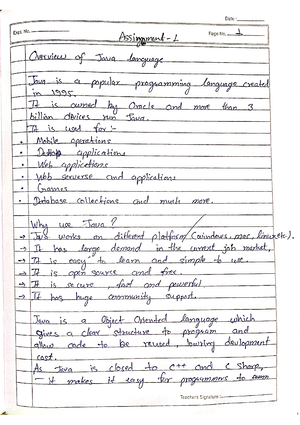 Date:
Expt. No.
Page No. 1
Assignment-1
Overview of Java language
Java is a popular programming language created
in 1995.
It is owned by Oracle and more than 3
billion devices run Java.
It is used for :-
Mobile operations
Desktop applications
Web applications
Web servers and applications
Games
Database collections and much more.
Why use Java?
→ Java works on different platform (windows, mac, linux, etc).
→ It has large demand in the current job market,
→ It is easy to learn and simple to use.
→ It is open source and free.
→ It is secure, fast and powerful
→ It has huge community support.
Java is a Object Oriented language which
gives a clear structure to program and
allow code to be reused, lowring development
cost.
As Java is closed to c++ and c sharp,
— it makes it easy for programmers to
Teacher's Signature